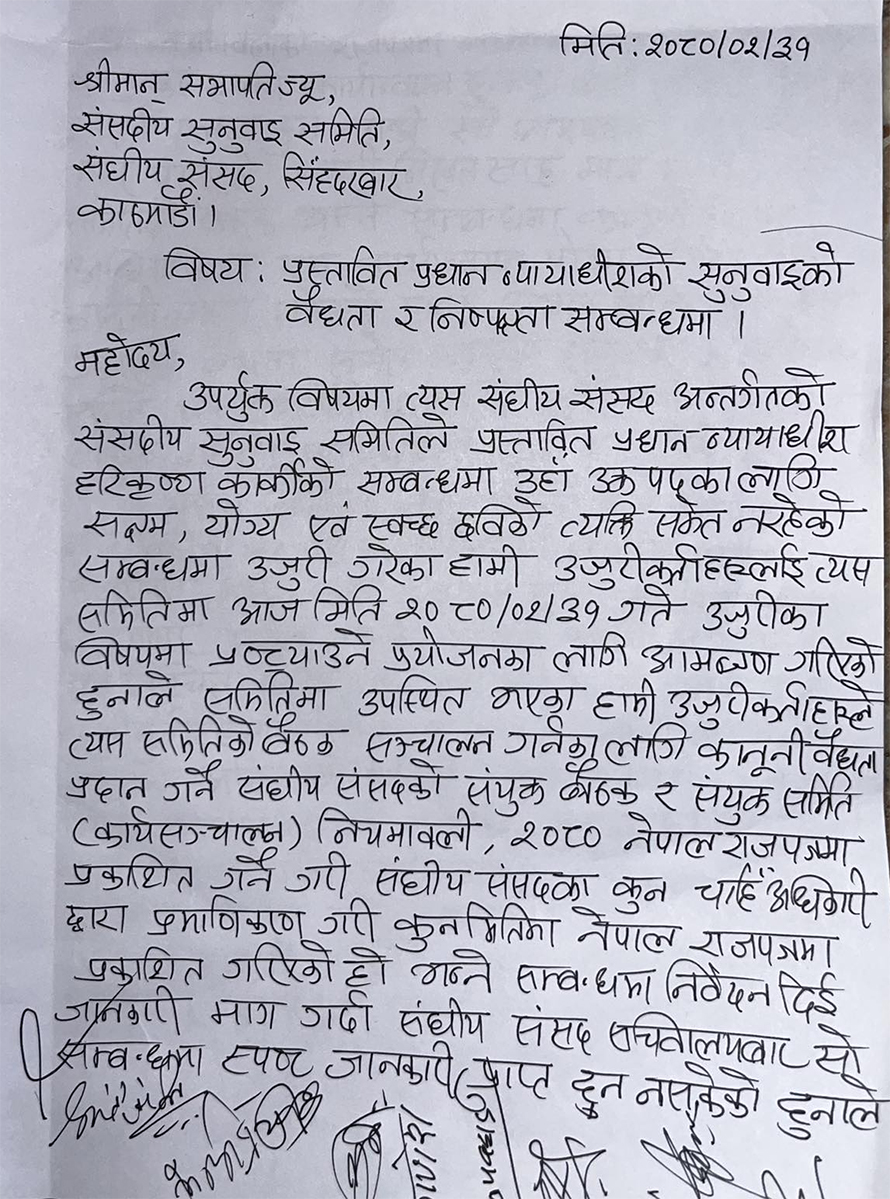 मिति: २०८०/०२/३१
श्रीमान् सभापतिज्यू,
संसदीय सुनुवाइ समिति,
संघीय संसद, सिंहदरबार,
काठमाडौं।
विषय: प्रस्तावित प्रधान न्यायाधीशको सुनुवाइको
वैधता र निष्पक्षता सम्बन्धमा ।
महोदय,
उपर्युक्त विषयमा त्यस संघीय संसद अन्तर्गतको
संसदीय सुनुवाइ समितिले प्रस्तावित प्रधान न्यायाधीश
हरिकृष्ण कार्कीको सम्बन्धमा उहाँ उक्त पदका लागि
सक्षम, योग्य एवं स्वच्छ छविको व्यक्ति समेत नरहेको
सम्बन्धमा उजुरी गरेका हामी उजुरीकर्ताहरूलाई त्यस
समितिमा आज मिति २०८०/०२/३१ गते उजुरीका
विषयमा प्रष्ट्याउने प्रयोजनका लागि आमन्त्रण गरिएको
हुनाले समितिमा उपस्थित भएका हामी उजुरीकर्ताहरूले
त्यस समितिको बैठक सञ्चालन गर्नका लागि कानूनी वैधता
प्रदान गर्ने संघीय संसदको संयुक्त बैठक र संयुक्त समिति
(कार्यसञ्चालन) नियमावली, २०८० नेपाल राजपत्रमा
प्रकाशित गर्ने गरी संघीय संसदका कुन चाहिँ अधिकारी
द्वारा प्रमाणिकरण गरी कुन मितिमा नेपाल राजपत्रमा
प्रकाशित गरिएको हो भन्ने सम्बन्धमा निवेदन दिई
जानकारी माग गर्दा संघीय संसद सचिवालयबाट सो
सम्बन्धमा स्पष्ट जानकारी प्राप्त हुन नसकेको हुनाले